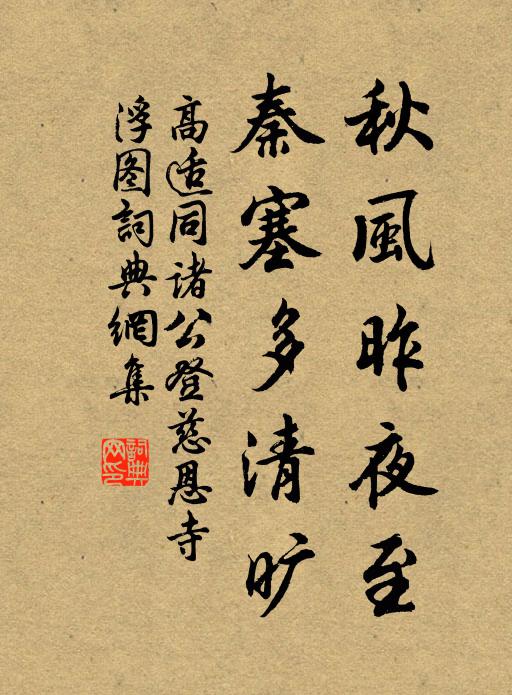 秋風昨夜至
秦塞多清旷
高适同諸公登慈恩寺
浮图詞典網集
詞典
网印